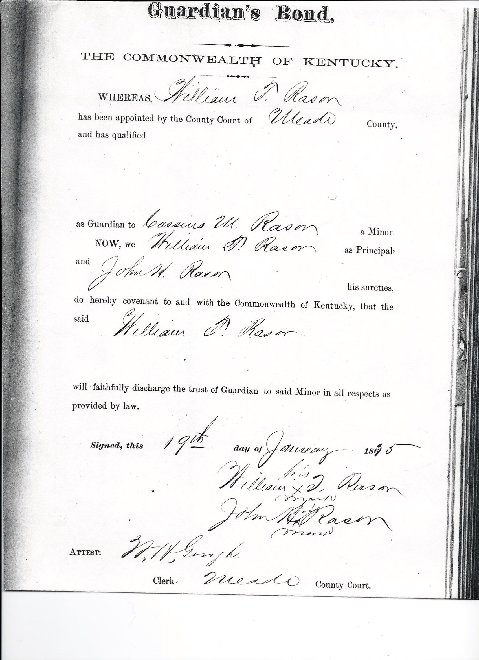 Guardian's Bond.
THE COMMONWEALTH OF KENTUCKY.
WHEREAS, William T. Rason
has been appointed by the County Court of Meade County,
and has qualified
as Guardian to Cassius M. Rason a Minor
NOW, we William T. Rason as Principal
and John H. Rason
his surties,
do hereby covenant to and with the Commonwealth of Kentucky, that the
said William T. Rason
will faithfully discharge the trust of Guardian to said Minor in all respects as
provided by law.
Signed, this 19th day of January 1895
his
William X T. Rason
mark
his
John H. X Rason
mark
ATTEST: W. H. Gough
Clerk Meade County Court.